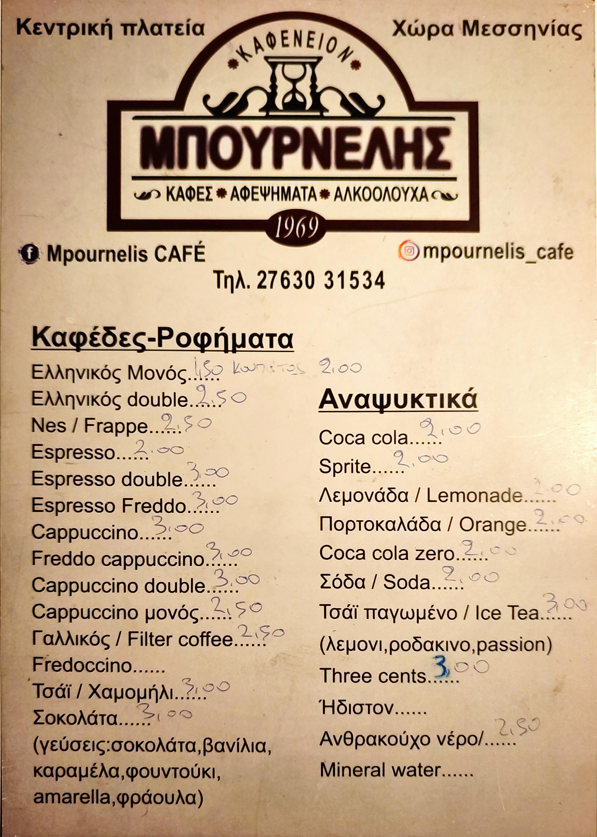 Κεντρική πλατεία
Χώρα Μεσσηνίας
ΚΑΦΕΝΕΙΟΝ
ΜΠΟΥΡΝΕΛΗΣ
ΚΑΦΕΣ ΑΦΕΨΗΜΑΤΑ ΑΛΚΟΟΛΟΥΧΑ
1969
Mpournelis CAFÉ
mpournelis_cafe
Τηλ. 27630 31534
Καφέδες-Ροφήματα
Ελληνικός Μονός...... 1,50 2.00
Ελληνικός double...... 2,50
Nes / Frappe...... 2,50
Espresso...... 2.00
Espresso double...... 3,00
Espresso Freddo...... 3,00
Cappuccino...... 3,00
Freddo cappuccino...... 3,00
Cappuccino double...... 3,00
Cappuccino μονός...... 2,50
Γαλλικός / Filter coffee...... 2,50
Fredoccino......
Τσάϊ / Χαμομήλι...... 3,00
Σοκολάτα...... 3,00
(γεύσεις:σοκολάτα,βανίλια,
καραμέλα,φουντούκι,
amarella,φράουλα)
Αναψυκτικά
Coca cola...... 2,00
Sprite...... 2,00
Λεμονάδα / Lemonade...... 2,00
Πορτοκαλάδα / Orange...... 2,00
Coca cola zero...... 2,00
Σόδα / Soda...... 2,00
Τσάϊ παγωμένο / Ice Tea...... 3,00
(λεμονι,ροδακινο,passion)
Three cents...... 3,00
Ήδιστον......
Ανθρακούχο νέρο/...... 2,50
Mineral water......